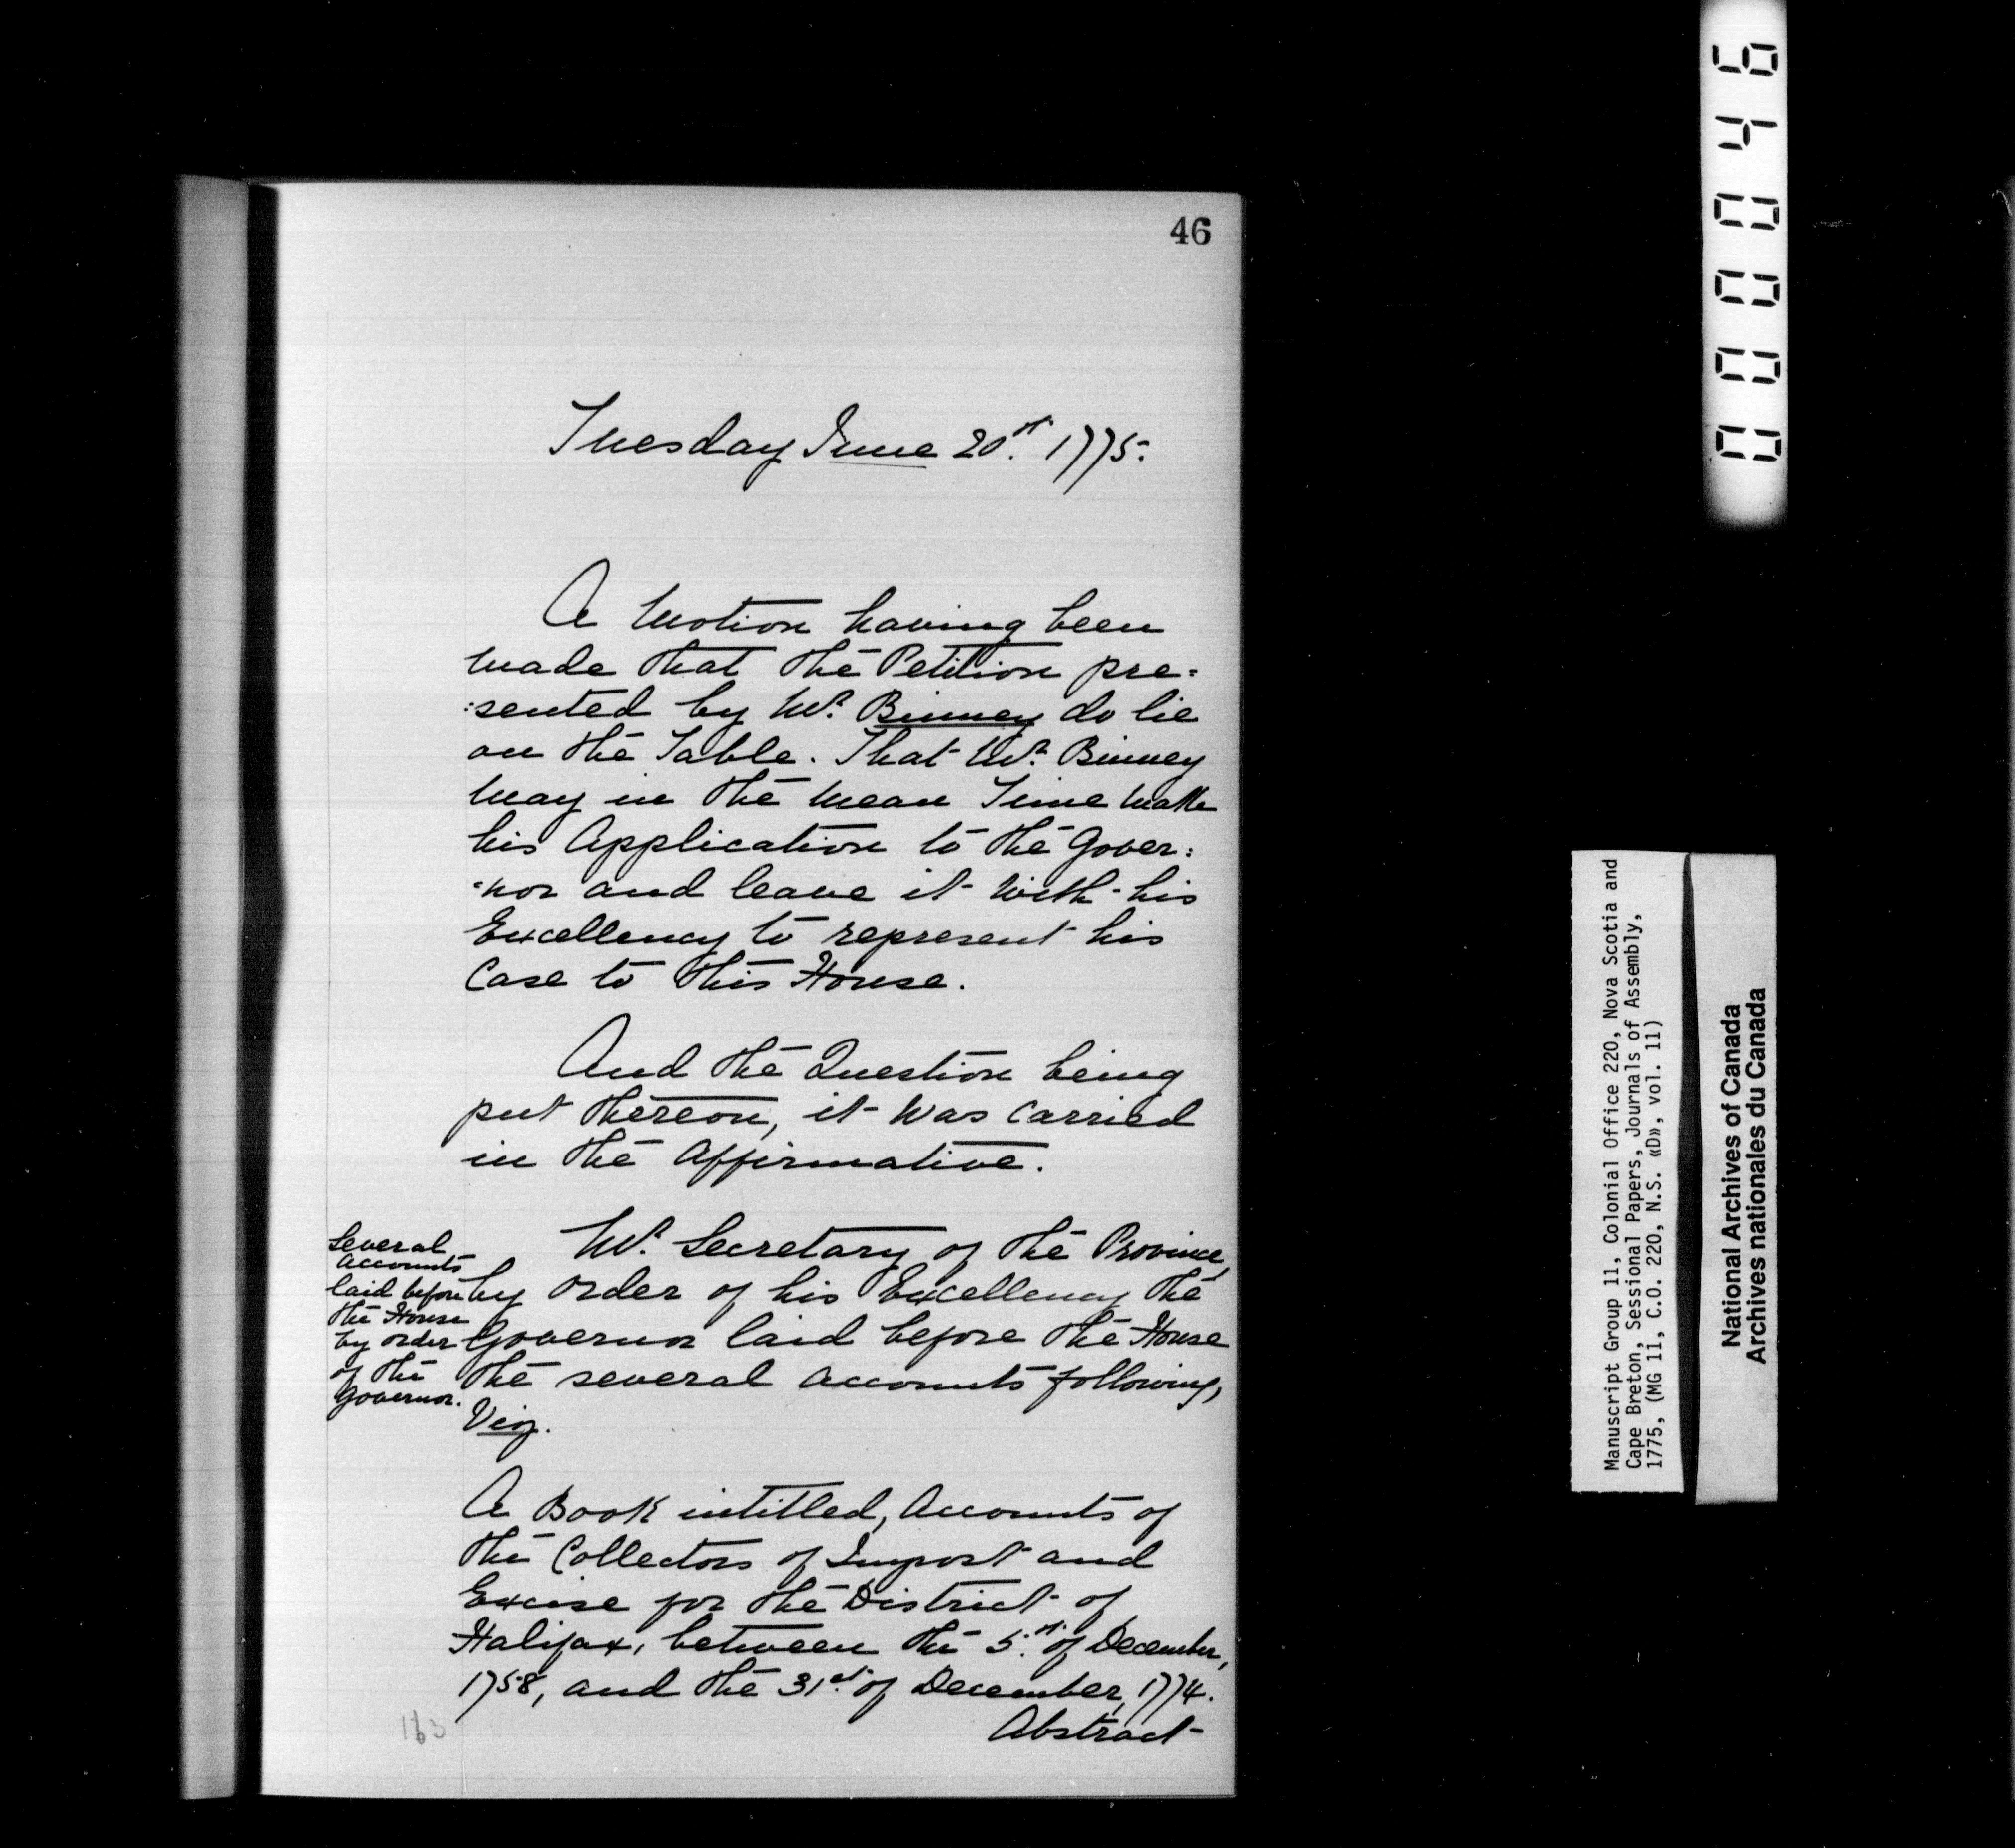 46
Tuesday June 20th. 1775.
A Motion having been
made that the Petition pre=
:sented by Mr. Binney do lie
on the Table. That Mr. Binney
may in the mean Time make
his Application to the Gover:
=nor and leave it with his
Excellency to represent his
Case to this House.
And the Question being
put thereon, it was carried
in the Affirmative.
Several
Accounts
laid before
the House
by order
of the
Governor.
Mr. Secretary of the Province,
by order of his Excellency the
Governor laid before the House
the several accounts following,
Viz.
A Book intitled, Accounts of
the Collectors of Impost and
Excise for the District of
Halifax, between the 5th. of December,
1758, and the 31st. of December, 1774.
Abstract
163
000046
Manuscript Group 11, Colonial Office 220, Nova Scotia and
Cape Breton, Sessional Papers, Journals of Assembly,
1775, (MG 11, C.O. 220, N.S. «D», vol. 11)
National Archives of Canada
Archives nationales du Canada